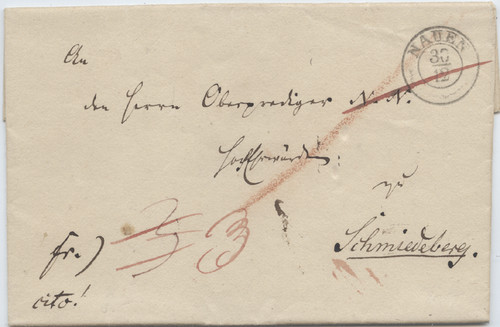 NAUEN
30
12
An
den Herrn Oberprediger N. N.
Hochehrwürden
zu
Schmiedeberg.
fr.)
cito!
3